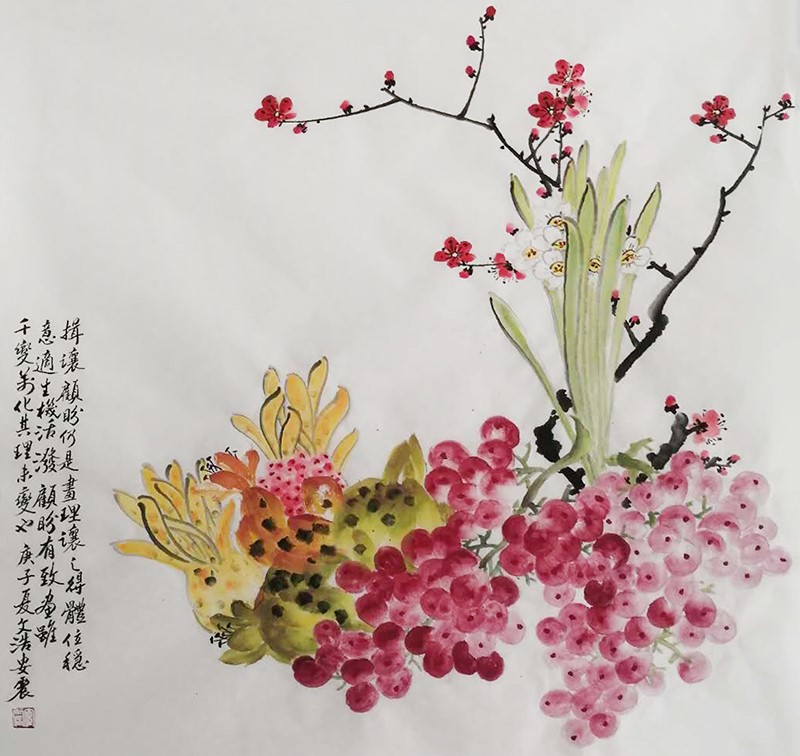 揖讓顧盼仍是畫理讓之得體位穩
意適生機活潑顧盼有致画雖
千變萬化其理未變也庚子夏文浩安震